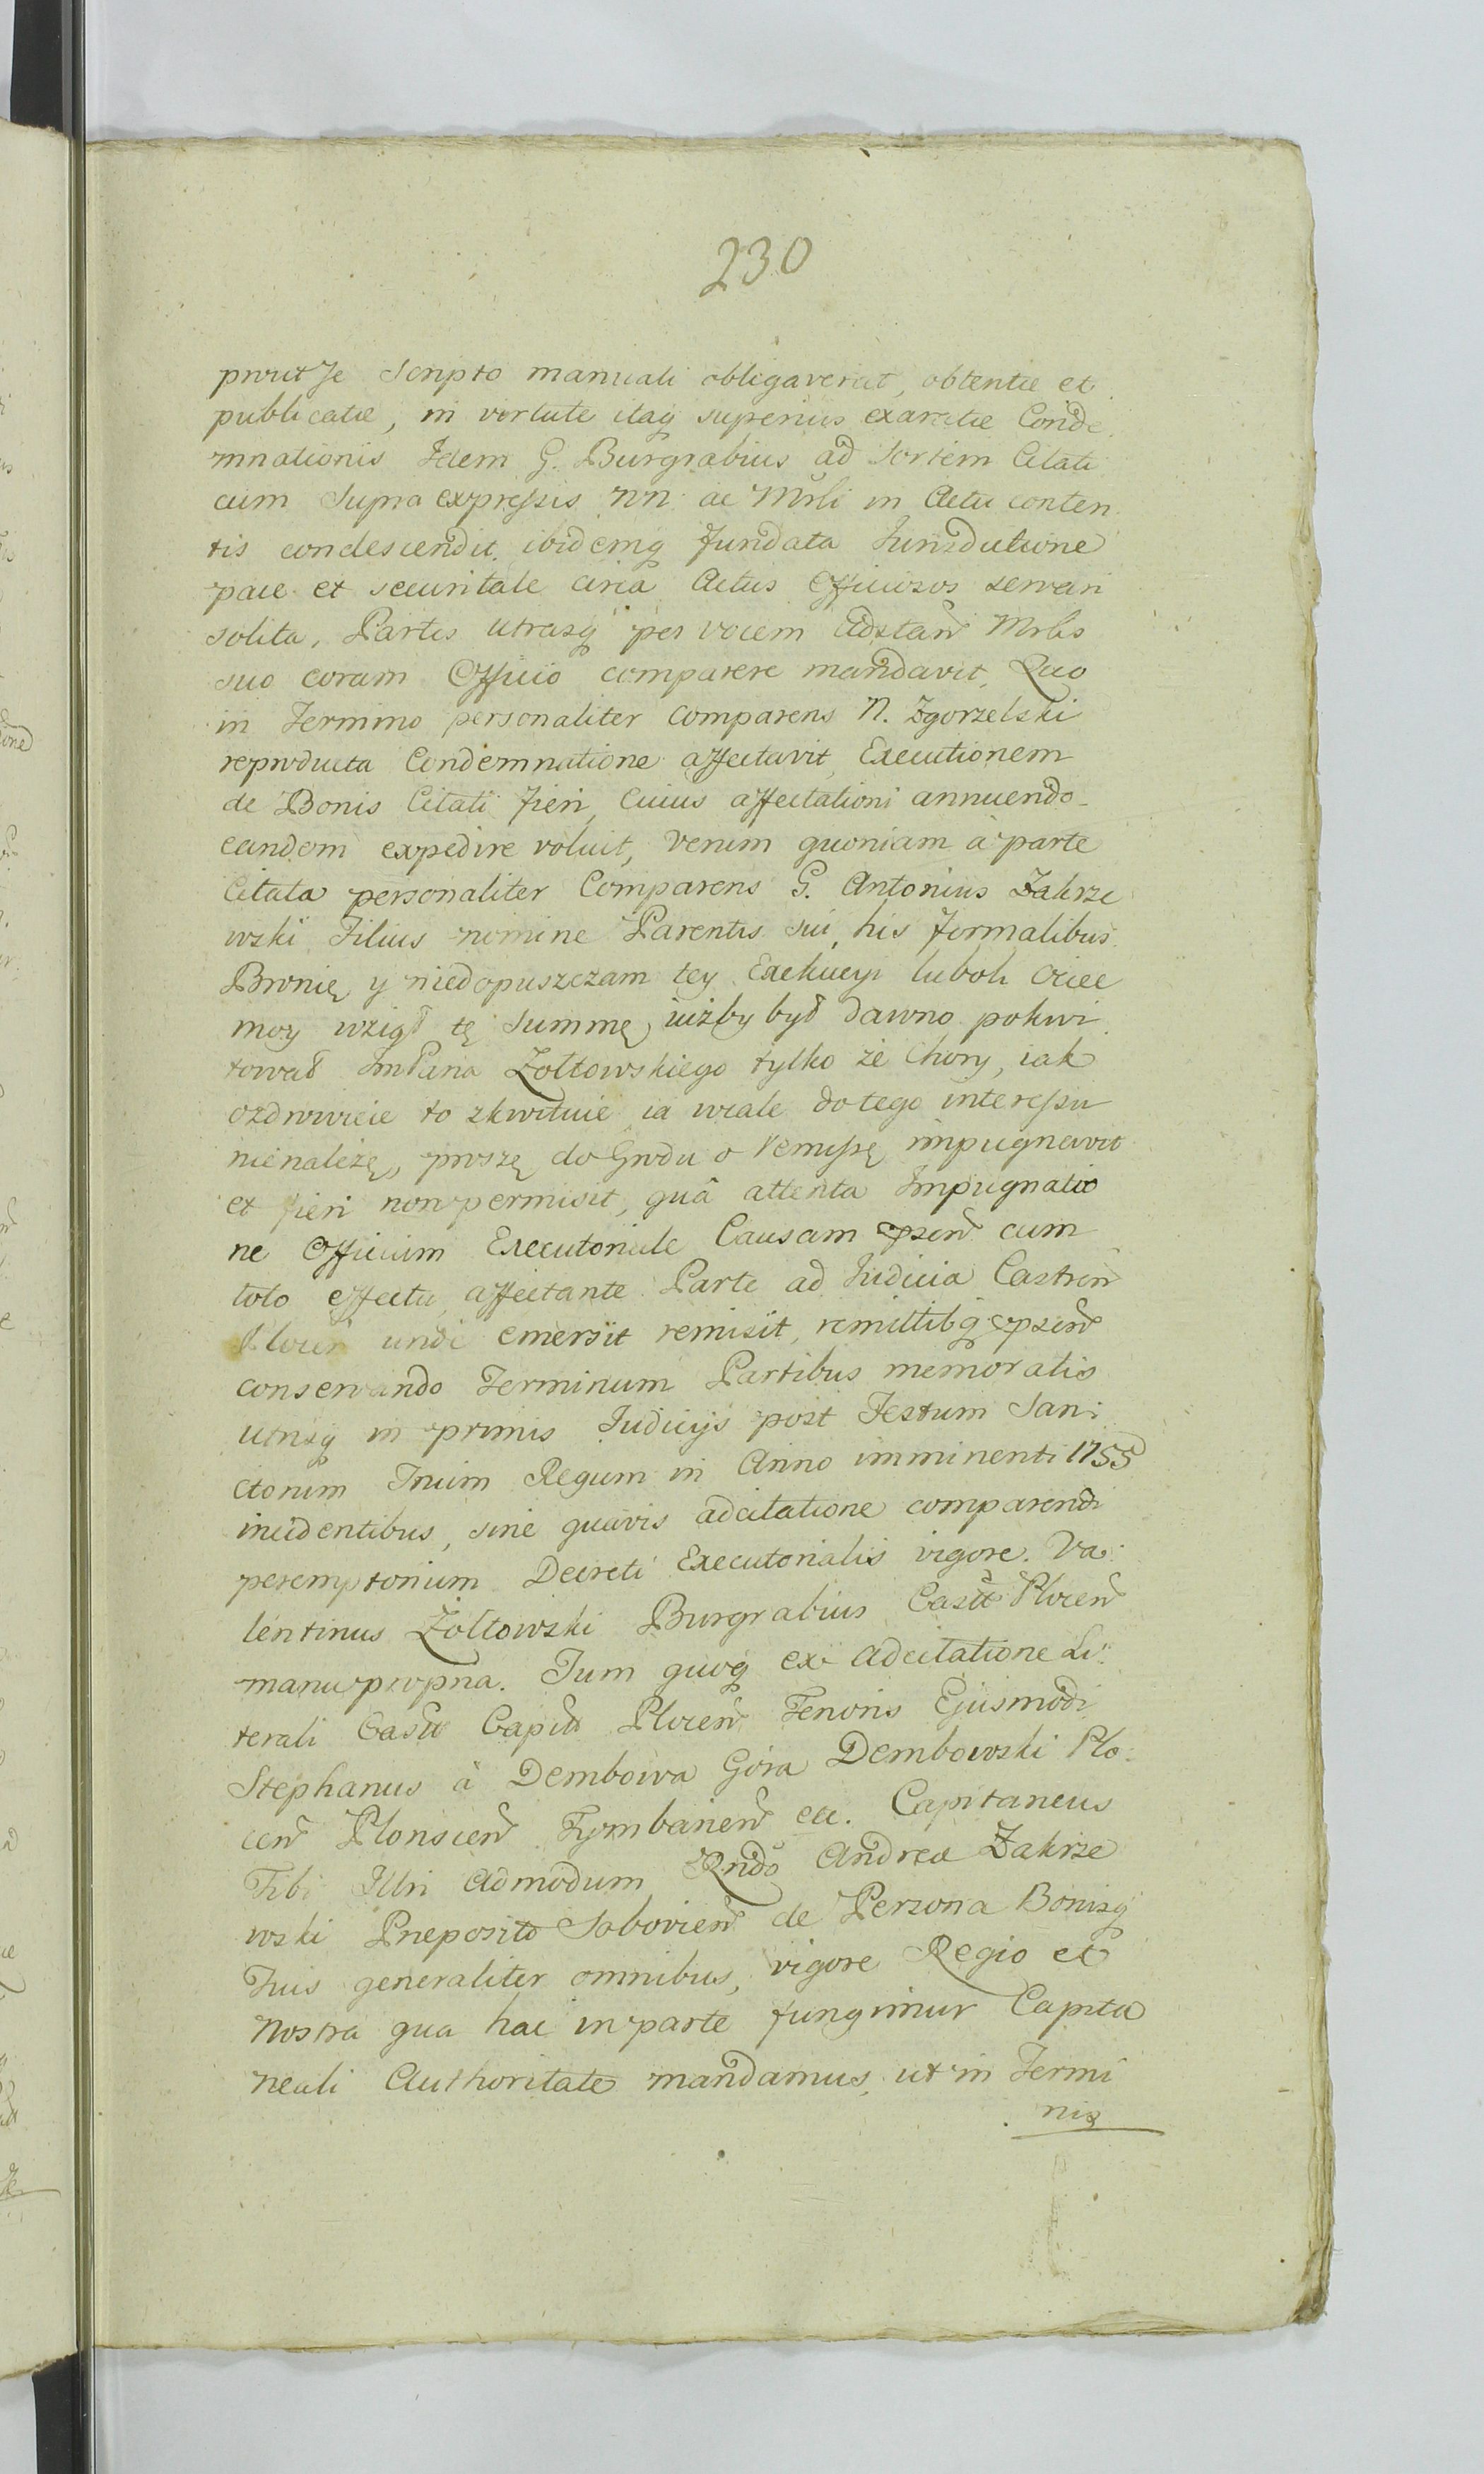 230
prout se scripto manuali obligaverat, obtentæ et
publicatæ, in virtute itaq superius exaratæ Conde
mnationis Idem G. Burgrabius ad sortem Citati
cum supra expressis NN. ac Mrli in Actu conten
tis condescendit, ibidemq fundata Jurisdictione
pace et securitate circa Actus Officiosos servari
solita, Partes utrasq per vocem Adstañ Mrlis
suo coram Officio comparere mandavit, Quo
in Termino personaliter comparens N. Zgorzelski
reproducta Condemnatione affectavit, Executionem
de Bonis Citati fieri, Cuius affectationi annuendo
eandem expedire voluit, Verum quoniam à parte
Citata personaliter Comparens G. Antonius Zakrze
wski Filius nomine Parentis sui, his formalibus
Bronię y niedopuszczam tey Exekucyi luboli Ociec
moy wziął tę summę, iużby był dawno pokwi
tował ImPana Zołtowskiego tylko że Chory, iak
ozdrowieie to zkwituie ia wcale do tego interessu
nienależę, proszę do Grodu o Remissę impugnavit
et fieri non permisit, quâ attenta Impugnatio
ne Officium Executoriale Causam ppseñ cum
toto effectu affectante Parte ad Judicia Castreñ
Ploceñ unde emersit remisit, remittitq ppseñ
conservando Terminum Partibus memoratis
utrisq in primis Judicijs post Festum San
ctorum Trium Regum in Anno imminenti 1755
incidentibus, sine quavis adcitatione comparendi
peremptorium Decreti Executorialis vigore. Va
lentinus Żołtowski Burgrabius Castr Ploceñ
manu propria. Tum quoq ex Adcitatione Li
terali Castr Capitt Ploceñ Tenoris Ejusmodi
Stephanus à Dembowa Góra Dembowski Plo
ceñ Plonsceñ Tymbarieñ etc. Capitaneus
Tibi Illri Admodum Rndo Andreæ Zakrze
wski Præposito Sobovieñ de Persona Bonisq
Tuis generaliter omnibus, vigore Regio et
Nostra qua hac in parte fungimur Capita
neali Authoritate mandamus, ut in Termi
nis